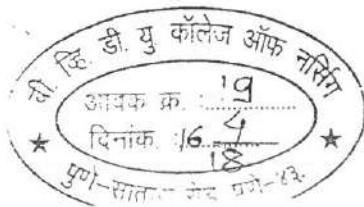 बी. व्हि. डी. यु कॉलेज ऑफ नर्सिंग
आवक क्र. : 19
दिनांक : 16 4
18
पुणे-सातारा रोड पुणे-४३.